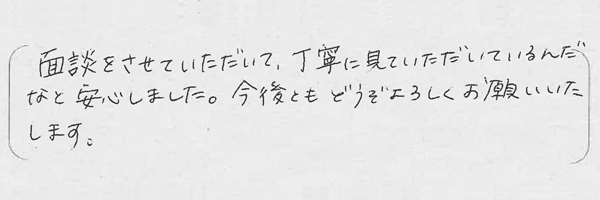 面談をさせていただいて、丁寧に見ていただいているんだ
なと安心しました。今後ともどうぞよろしくお願いいた
します。